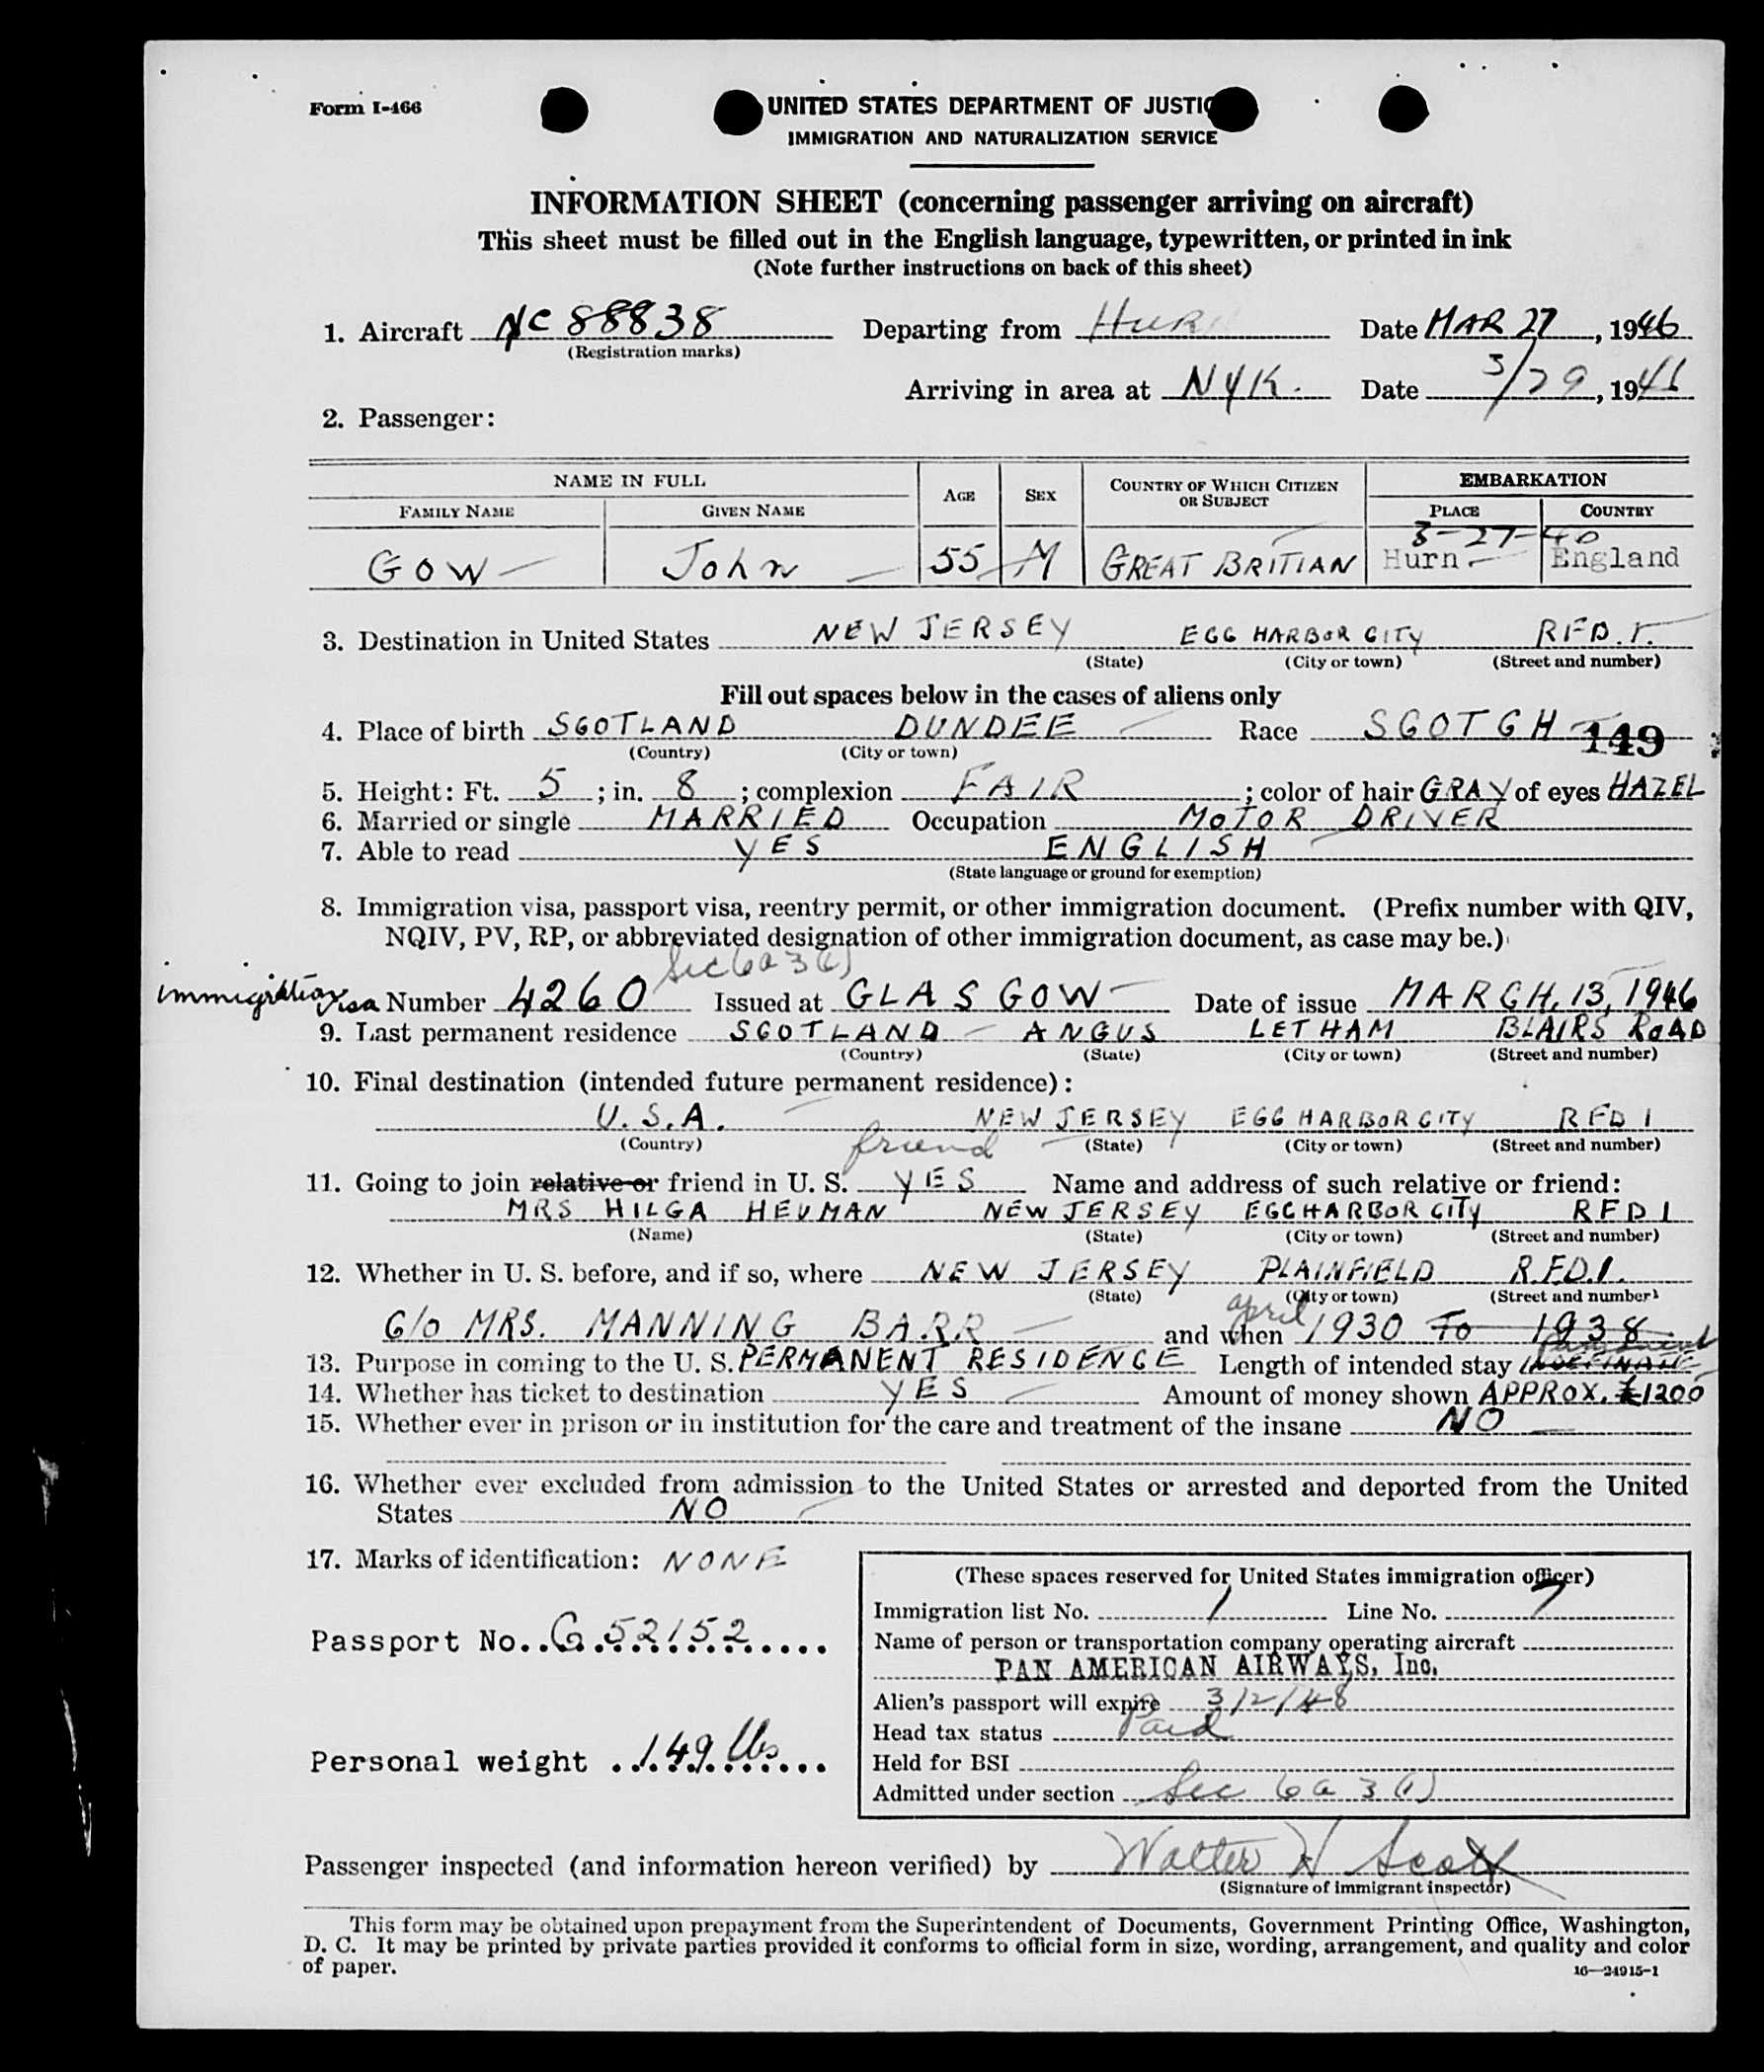 Form I-466
UNITED STATES DEPARTMENT OF JUSTIC
IMMIGRATION AND NATURALIZATION SERVICE
INFORMATION SHEET (concerning passenger arriving on aircraft)
This sheet must be filled out in the English language, typewritten, or printed in ink
(Note further instructions on back of this sheet)
1. Aircraft NC 88838 Departing from HURN Date MAR 27, 1946
(Registration marks)
Arriving in area at NYK. Date 3/29, 1946
2. Passenger:
NAME IN FULL AGE SEX COUNTRY OF WHICH CITIZEN OR SUBJECT EMBARKATION
FAMILY NAME GIVEN NAME PLACE COUNTRY
3-27-46
GOW John 55 M GREAT BRITIAN Hurn England
3. Destination in United States NEW JERSEY EGG HARBOR CITY RFD.1.
(State) (City or town) (Street and number)
Fill out spaces below in the cases of aliens only
4. Place of birth SCOTLAND DUNDEE Race SCOTCH 149
(Country) (City or town)
5. Height: Ft. 5; in. 8; complexion FAIR; color of hair GRAY of eyes HAZEL
6. Married or single MARRIED Occupation MOTOR DRIVER
7. Able to read YES ENGLISH
(State language or ground for exemption)
8. Immigration visa, passport visa, reentry permit, or other immigration document. (Prefix number with QIV,
NQIV, PV, RP, or abbreviated designation of other immigration document, as case may be.)
Sec 6a 3(1)
immigration visa Number 4260 Issued at GLASGOW Date of issue MARCH, 13, 1946
9. Last permanent residence SCOTLAND ANGUS LETHAM BLAIRS ROAD
(Country) (State) (City or town) (Street and number)
10. Final destination (intended future permanent residence):
U.S.A. NEW JERSEY EGG HARBOR CITY RFD 1
(Country) (State) (City or town) (Street and number)
friend
11. Going to join relative or friend in U. S. YES Name and address of such relative or friend:
MRS HILGA HEUMAN NEW JERSEY EGG HARBOR CITY RFD 1
(Name) (State) (City or town) (Street and number)
12. Whether in U. S. before, and if so, where NEW JERSEY PLAINFIELD R.F.D.1.
(State) (City or town) (Street and number)
C/O MRS. MANNING BARR and when april 1930 TO 1938
13. Purpose in coming to the U. S. PERMANENT RESIDENCE Length of intended stay INDEFINATE Permanent
14. Whether has ticket to destination YES Amount of money shown APPROX. £1200
15. Whether ever in prison or in institution for the care and treatment of the insane NO
16. Whether ever excluded from admission to the United States or arrested and deported from the United
States NO
17. Marks of identification: NONE
Passport No. G 52152
Personal weight 149 lbs
(These spaces reserved for United States immigration officer)
Immigration list No. 1 Line No. 7
Name of person or transportation company operating aircraft
PAN AMERICAN AIRWAYS, Inc.
Alien's passport will expire 3/2/48
Head tax status Paid
Held for BSI
Admitted under section Sec 6a 3(1)
Passenger inspected (and information hereon verified) by Walter H Scott
(Signature of immigrant inspector)
This form may be obtained upon prepayment from the Superintendent of Documents, Government Printing Office, Washington,
D. C. It may be printed by private parties provided it conforms to official form in size, wording, arrangement, and quality and color
of paper.
16—24915-1